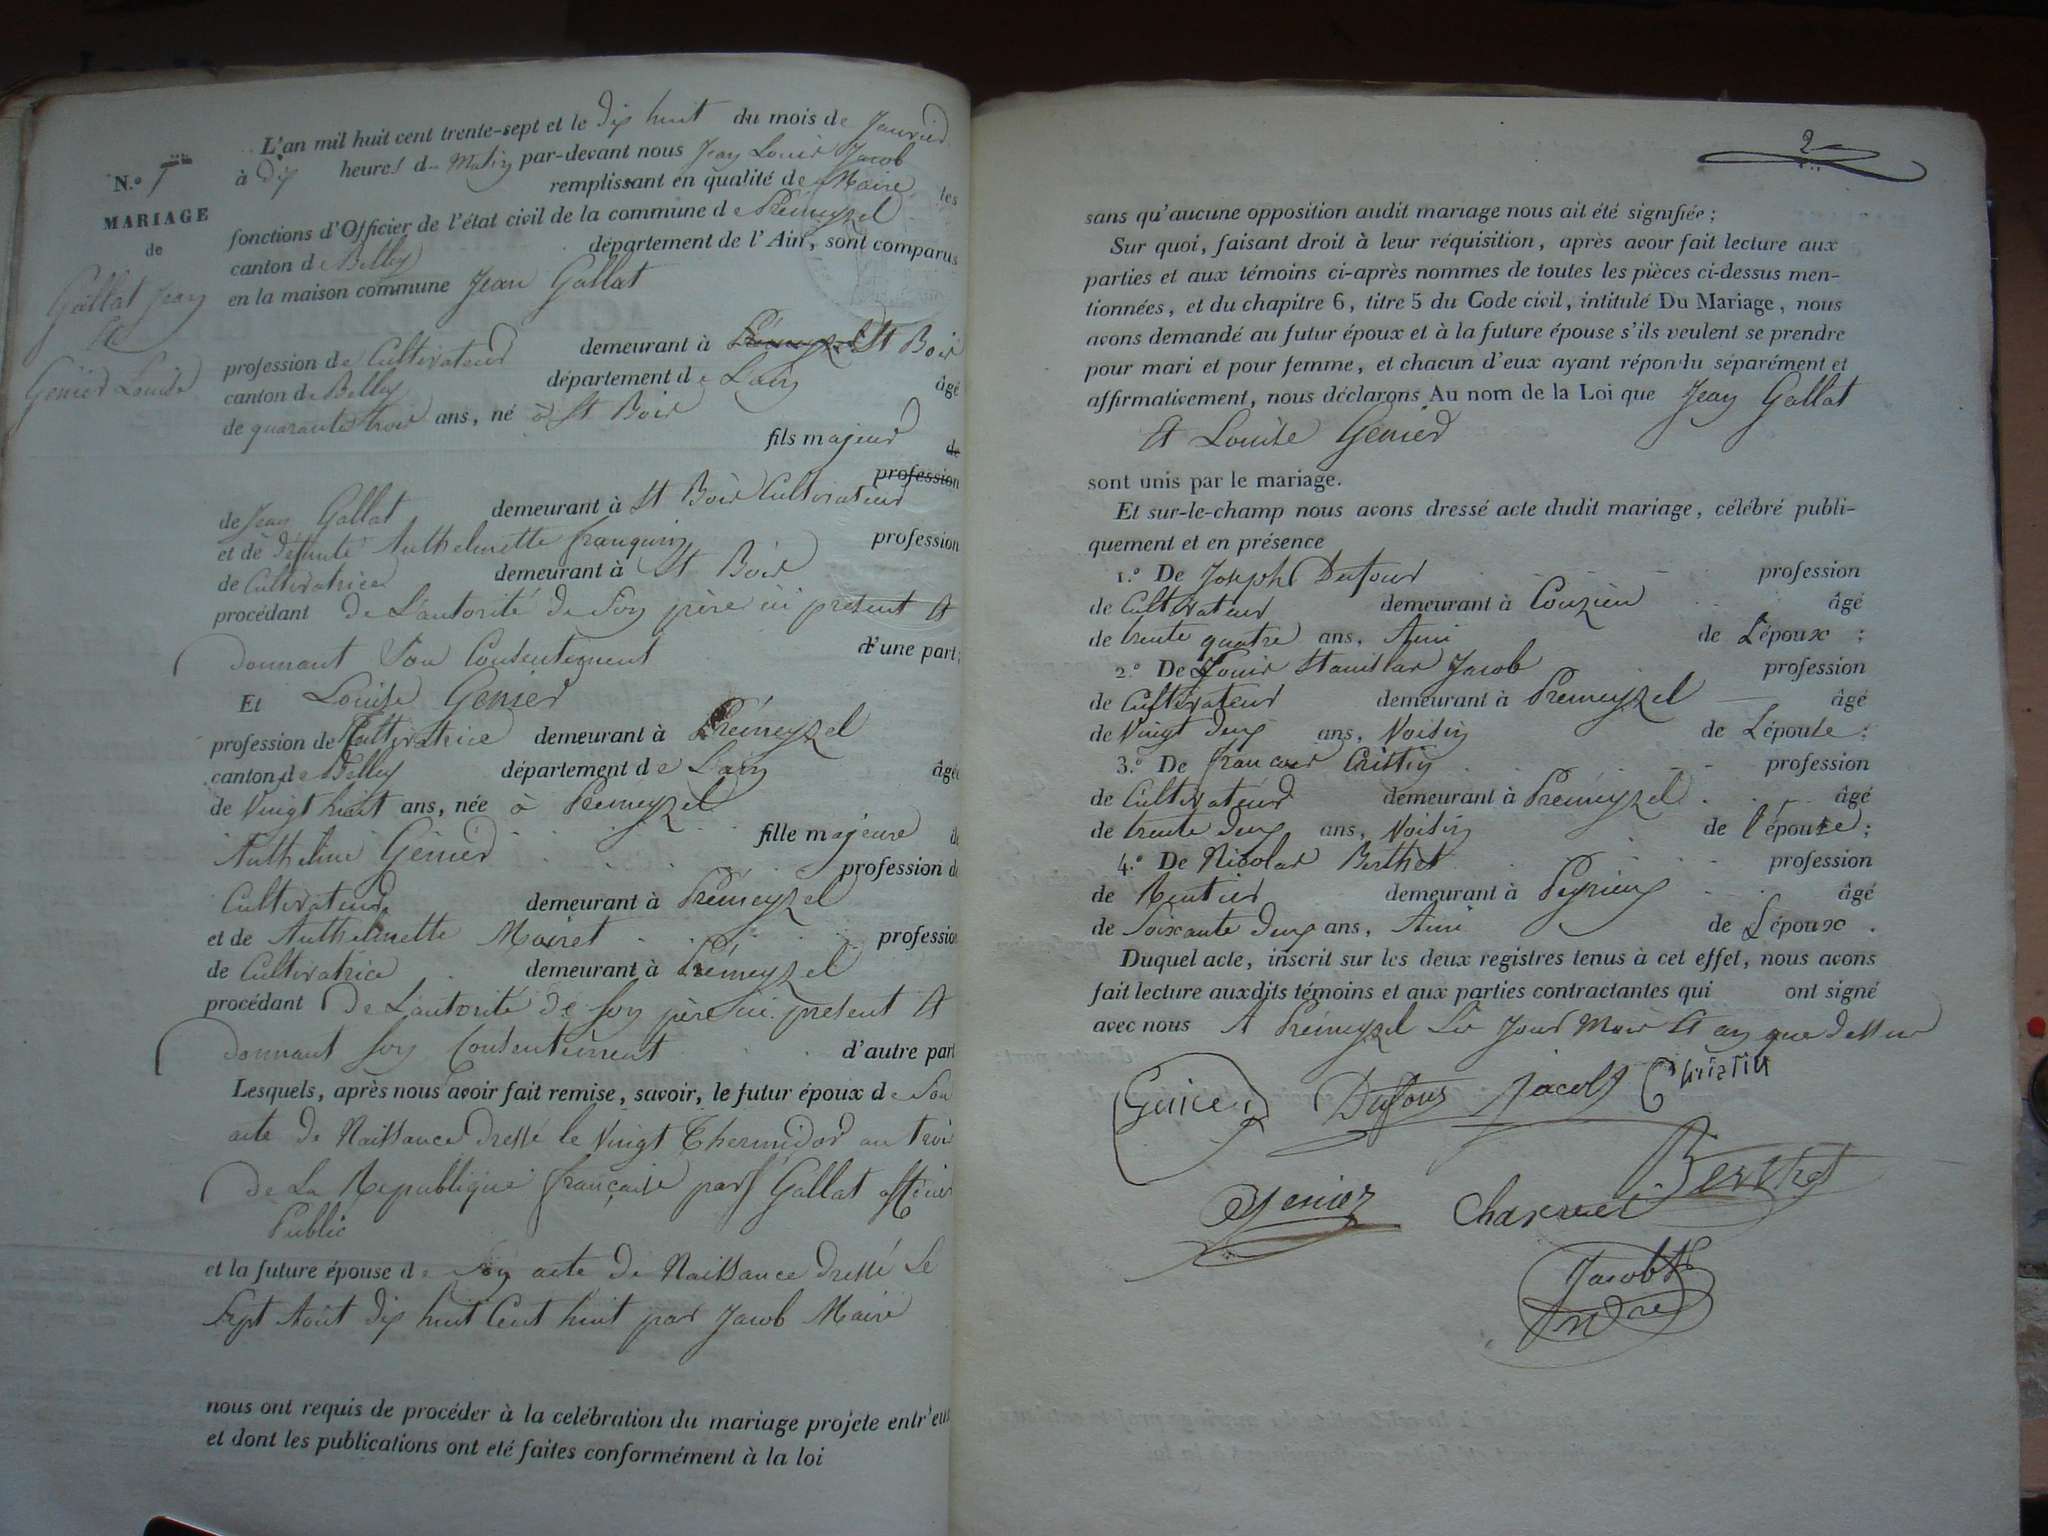 L'an mil huit cent trente-sept et le dix huit du mois de Janvier
à dix heures du Matin par-devant nous Jean Louis Jacob
remplissant en qualité de Maire les
fonctions d'Officier de l'état civil de la commune de Prémeyzel
canton de Belley département de l'Ain, sont comparus
en la maison commune Jean Gallat
N.º 1
MARIAGE
de
Gallat Jean
Et
Genier Louise
profession de Cultivateur demeurant à Prémeyzel St Bois
canton de Belley département de L'ain âgé
de quarante trois ans, né à St Bois
fils majeur de
profession
de Jean Gallat demeurant à St Bois Cultivateur
et de défunte Anthelmette franquin profession
de Cultivatrice demeurant à St Bois
procédant de L'autorité de Son père ici présent Et
donnant Son Consentement d'une part;
Et Louise Genier
profession de Cultivatrice demeurant à Prémeyzel
canton de Belley département de L'ain âgée
de Vingt huit ans, née à Prémeyzel
fille majeure de
Anthelme Génier profession de
Cultivateur demeurant à Prémeyzel
et de Anthelmette Moiret profession
de Cultivatrice demeurant à Prémeyzel
procédant de L'autorité de Son père ici présent Et
donnant Son Consentement d'autre part
Lesquels, après nous avoir fait remise, savoir, le futur époux de Son
acte de Naissance dressé le Vingt Thermidor an trois
de La République française par Gallat officier
Public
et la future épouse de Son acte de Naissance dressé Le
Sept Août dix huit Cent huit par Jacob Maire
nous ont requis de procéder à la celébration du mariage projeté entr'eux
et dont les publications ont eté faites conformément à la loi
2
sans qu'aucune opposition audit mariage nous ait été signifiée;
Sur quoi, faisant droit à leur réquisition, après avoir fait lecture aux
parties et aux témoins ci-après nommes de toutes les pièces ci-dessus men-
tionnées, et du chapitre 6, titre 5 du Code civil, intitulé Du Mariage, nous
avons demandé au futur époux et à la future épouse s'ils veulent se prendre
pour mari et pour femme, et chacun d'eux ayant répondu séparément et
affirmativement, nous déclarons Au nom de la Loi que Jean Gallat
Et Louise Genier
sont unis par le mariage.
Et sur-le-champ nous avons dressé acte dudit mariage, célébré publi-
quement et en présence
1.º De Joseph Dufour profession
de Cultivateur demeurant à Conzieu âgé
de trente quatre ans, Ami de L'époux;
2.º De Louis Stanislas Jacob profession
de Cultivateur demeurant à Prémeyzel âgé
de Vingt deux ans, Voisin de L'épouse;
3.º De françois Cristin profession
de Cultivateur demeurant à Prémeyzel âgé
de trente deux ans, Voisin de l'épouse;
4.º De Nicolas Berthet profession
de Rentier demeurant à Peyrieux âgé
de Soixante deux ans, Ami de L'époux.
Duquel acte, inscrit sur les deux registres tenus à cet effet, nous avons
fait lecture auxdits témoins et aux parties contractantes qui ont signé
avec nous A Prémeyzel Les Jour Mois Et an que dessus
Dufour Jacob Christin
Genier Charvet Berthet
Jacob